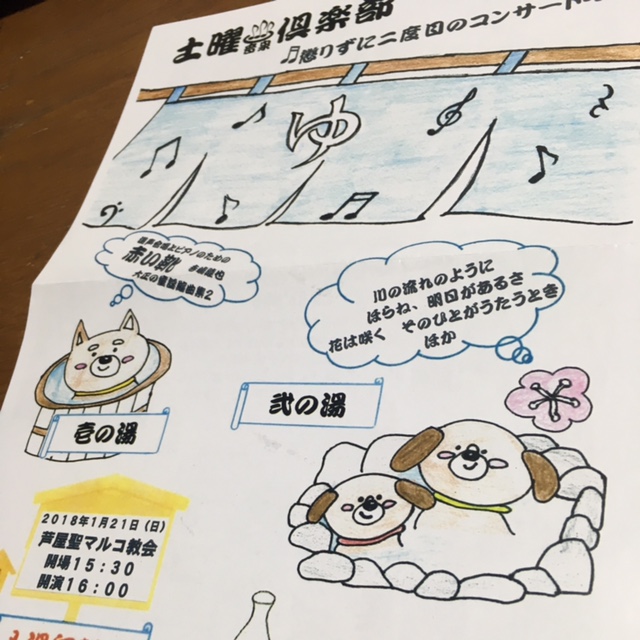 土曜♨倶楽部
音楽
♫懲りずに二度目のコンサート
ゆ
混声合唱とピアノのための
赤い靴 信長貴富
大正の童謡編曲集2
川の流れのように
ほらね、明日があるさ
花は咲く そのひとがうたうとき
ほか
壱の湯
弐の湯
2018年1月21日(日)
芦屋聖マルコ教会
開場15:30
開演16:00